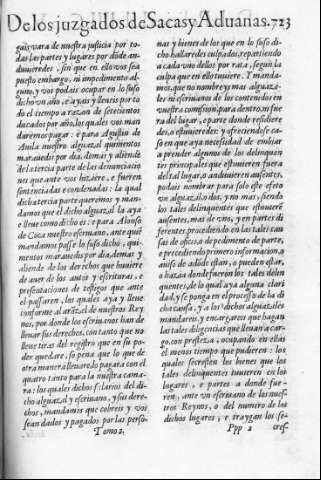 De los juzgados de Sacas y Aduanas. 723
gais vara de nuestra justicia por to-
das las partes y lugares por dõde an-
duuieredes, sin que en ello vos sea
puesto embargo, ni impedimento al-
guno, y vos podais ocupar en lo suso
dicho vn año, e ayais y lleueis por to
do el tiempo a razon de
cada por año, los quales vos man
daremos pagar: e para Agustin de
Auila nuestro alguazil, quinientos
marauedis por dia, demas y aliende
de la tercia parte de las denunciacio
nes que ante vos hiziere, e fueren
sentenciadas e condenadas: la qual
dicha tercia parte queremos y man-
damos que el dicho alguazil la aya
e lleue como dicho es: e para Alonso
de Coca nuestro escriuano, ante quiẽ
mandamos passe lo suso dicho, qui-
nientos marauedis por dia, demas y
aliende de los derechos que huuiere
de auer de los autos y escrituras, e
presentaciones de testigos que ante
el passaren, los quales aya y lleue
conforme al arãzel de nuestros Rey
nos, por donde los escriuanos han de
lleuar sus derechos, con tanto que no
lleue tiras del registro que en su po-
der quedare, so pena que lo que de
otra manera lleuare, lo pagara con el
quatro tanto para la nuestra cama-
ra: los quales dichos salarios del di-
cho alguazil y escriuano, y sus dere-
chos, mandamos que cobreis y vos
sean dados y pagados por las perso-
Tomo 2.
nas y bienes de los que en lo suso di-
cho hallaredes culpados, repartiendo
a cada vno dellos por rata, segun la
culpa que en ello tuuiere. Y manda-
mos, que no nombre y mas alguazi-
les ni escriuanos de los contenidos en
nuestra comission, para dentro, ni fue
ra del lugar, e parte donde residiere
des, o estuuieredes: y ofreciendose ca-
so en que aya necessidad de embiar
a prender algunos de los delinquen
tes principales que estuuieren fuera
del tal lugar, o anduuieren ausentes,
podais nombrar para solo este efeto
vn alguazil, o dos, y no mas, siendo
los tales delinquentes que estuuierẽ
ausentes, mas de vno, y en partes di
ferentes, procediendo en las tales cau
sas de oficio, o pedimento de parte,
e precediendo primero informacion,
auiso de adõde estan, o pueden estar,
o hazia donde fuerõn los tales delin
quentes, de lo qual aya alguna clari
dad, y se ponga en el processo de la di
cha causa, y a los dichos alguaziles
mandareis y encargareis que hagan
las tales diligencias que lleuan a car-
go, con presteza, ocupando en ellas
el menos tiempo que pudieren: los
quales los bienes que los
tales delinquentes tuuieren en los
lugares, e partes a donde fue-
ren, ante vn escriuano de los nues-
tros Reynos, o del numero de los
dichos lugares, e traygan los se-
Ppp 2 cres-